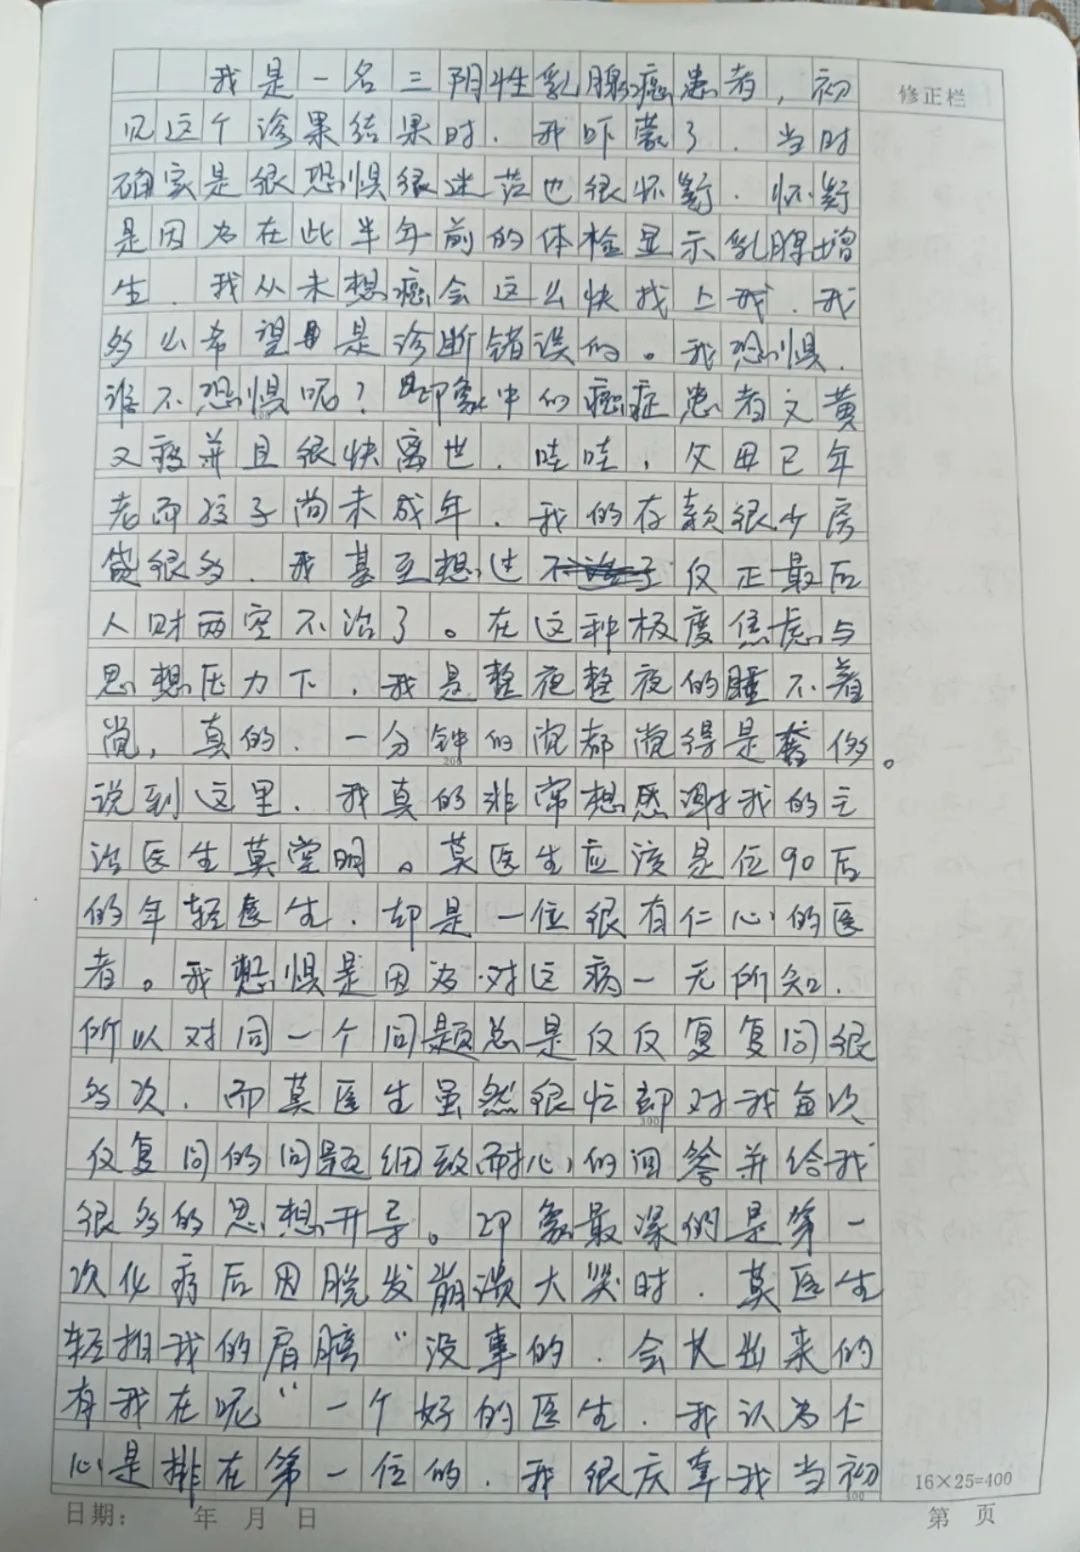 我是一名三阴性乳腺癌患者，初
修正栏
见这个诊果结果时．我吓蒙了．当时
确实是很恐惧很迷茫也很怀疑．怀疑
是因为在此半年前的体检显示乳腺增
生．我从未想癌会这么快找上我．我
多么希望是诊断错误的。我恐惧．
谁不恐惧呢？印象中的癌症患者又黄
又瘦并且很快离世．哇哇，父母已年
老而孩子尚未成年．我的存款很少房
贷很多．我甚至想过仅正最后
人财两空不治了。在这种极度焦虑与
思想压力下．我是整夜整夜的睡不着
觉，真的．一分钟的觉都觉得是奢侈。
200
说到这里．我真的非常想感谢我的主
治医生莫堂明。莫医生应该是位90后
的年轻医生．却是一位很有仁心的医
者。我恐惧是因为对这病一无所知．
所以对同一个问题总是仅仅复复问很
多次．而莫医生虽然很忙却对我每次
300
仅复问的问题细致耐心的回答并给我
很多的思想开导。印象最深的是第一
次化疗后因脱发崩溃大哭时．莫医生
轻拍我的肩膀“没事的．会长出来的
有我在呢“一个好的医生．我认为仁
心是排在第一位的．我很庆幸我当初
16×25=400
日期： 年 月 日
第 页